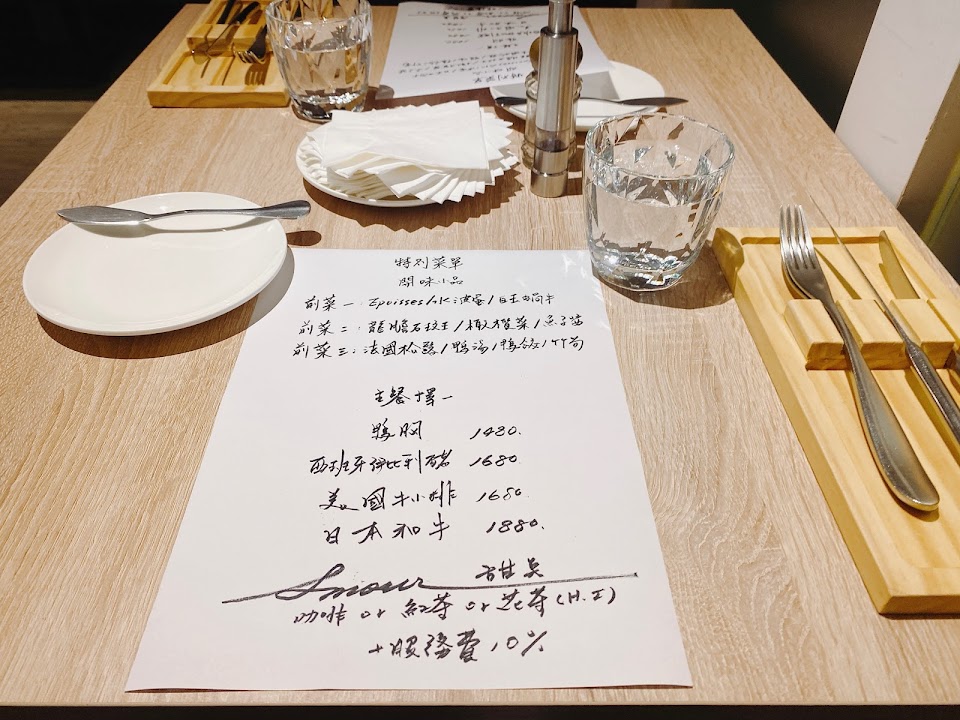 特別菜單
開味小品
前菜一：Epoisses A.K 波蜜/日王干
前菜二：龍膽石斑王/橄欖菜/魚子醬
前菜三：法國松露/鴨湯/鴨餃/竹荀
主餐擇一
鴨胸 1480.
西班牙伊比利豬 1680.
美國牛小排 1680.
日本和牛 1880.
Amour 甜点
咖啡 or 紅茶 or 花茶(H.I)
+服務費10%
特別菜單